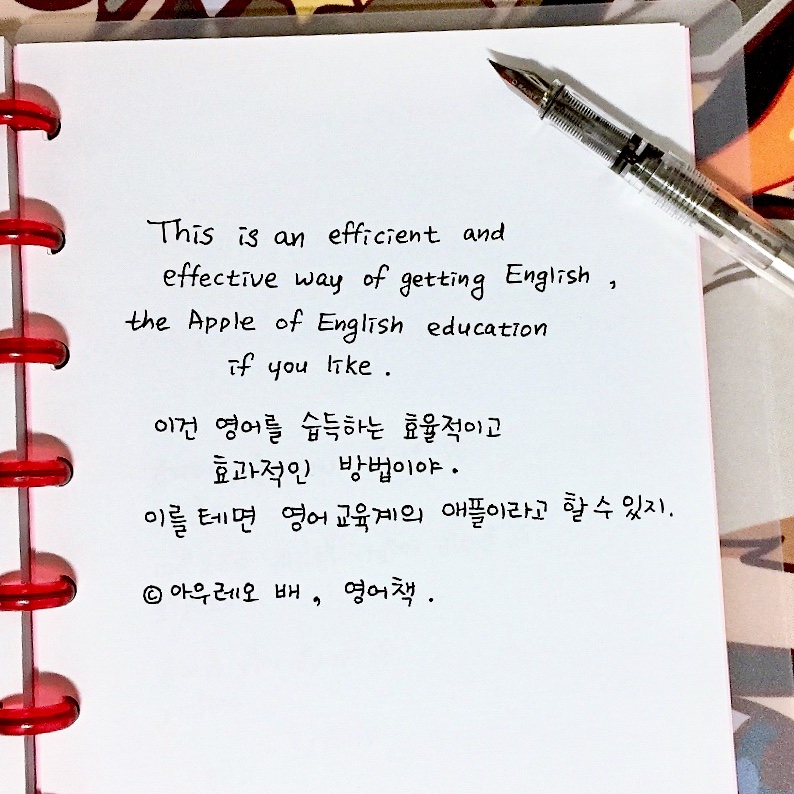 This is an efficient and
effective way of getting English ,
the Apple of English education
if you like .
이건 영어를 습득하는 효율적이고
효과적인 방법이야.
이를테면 영어교육계의 애플이라고 할 수 있지.
© 아우레오 배 , 영어책 .